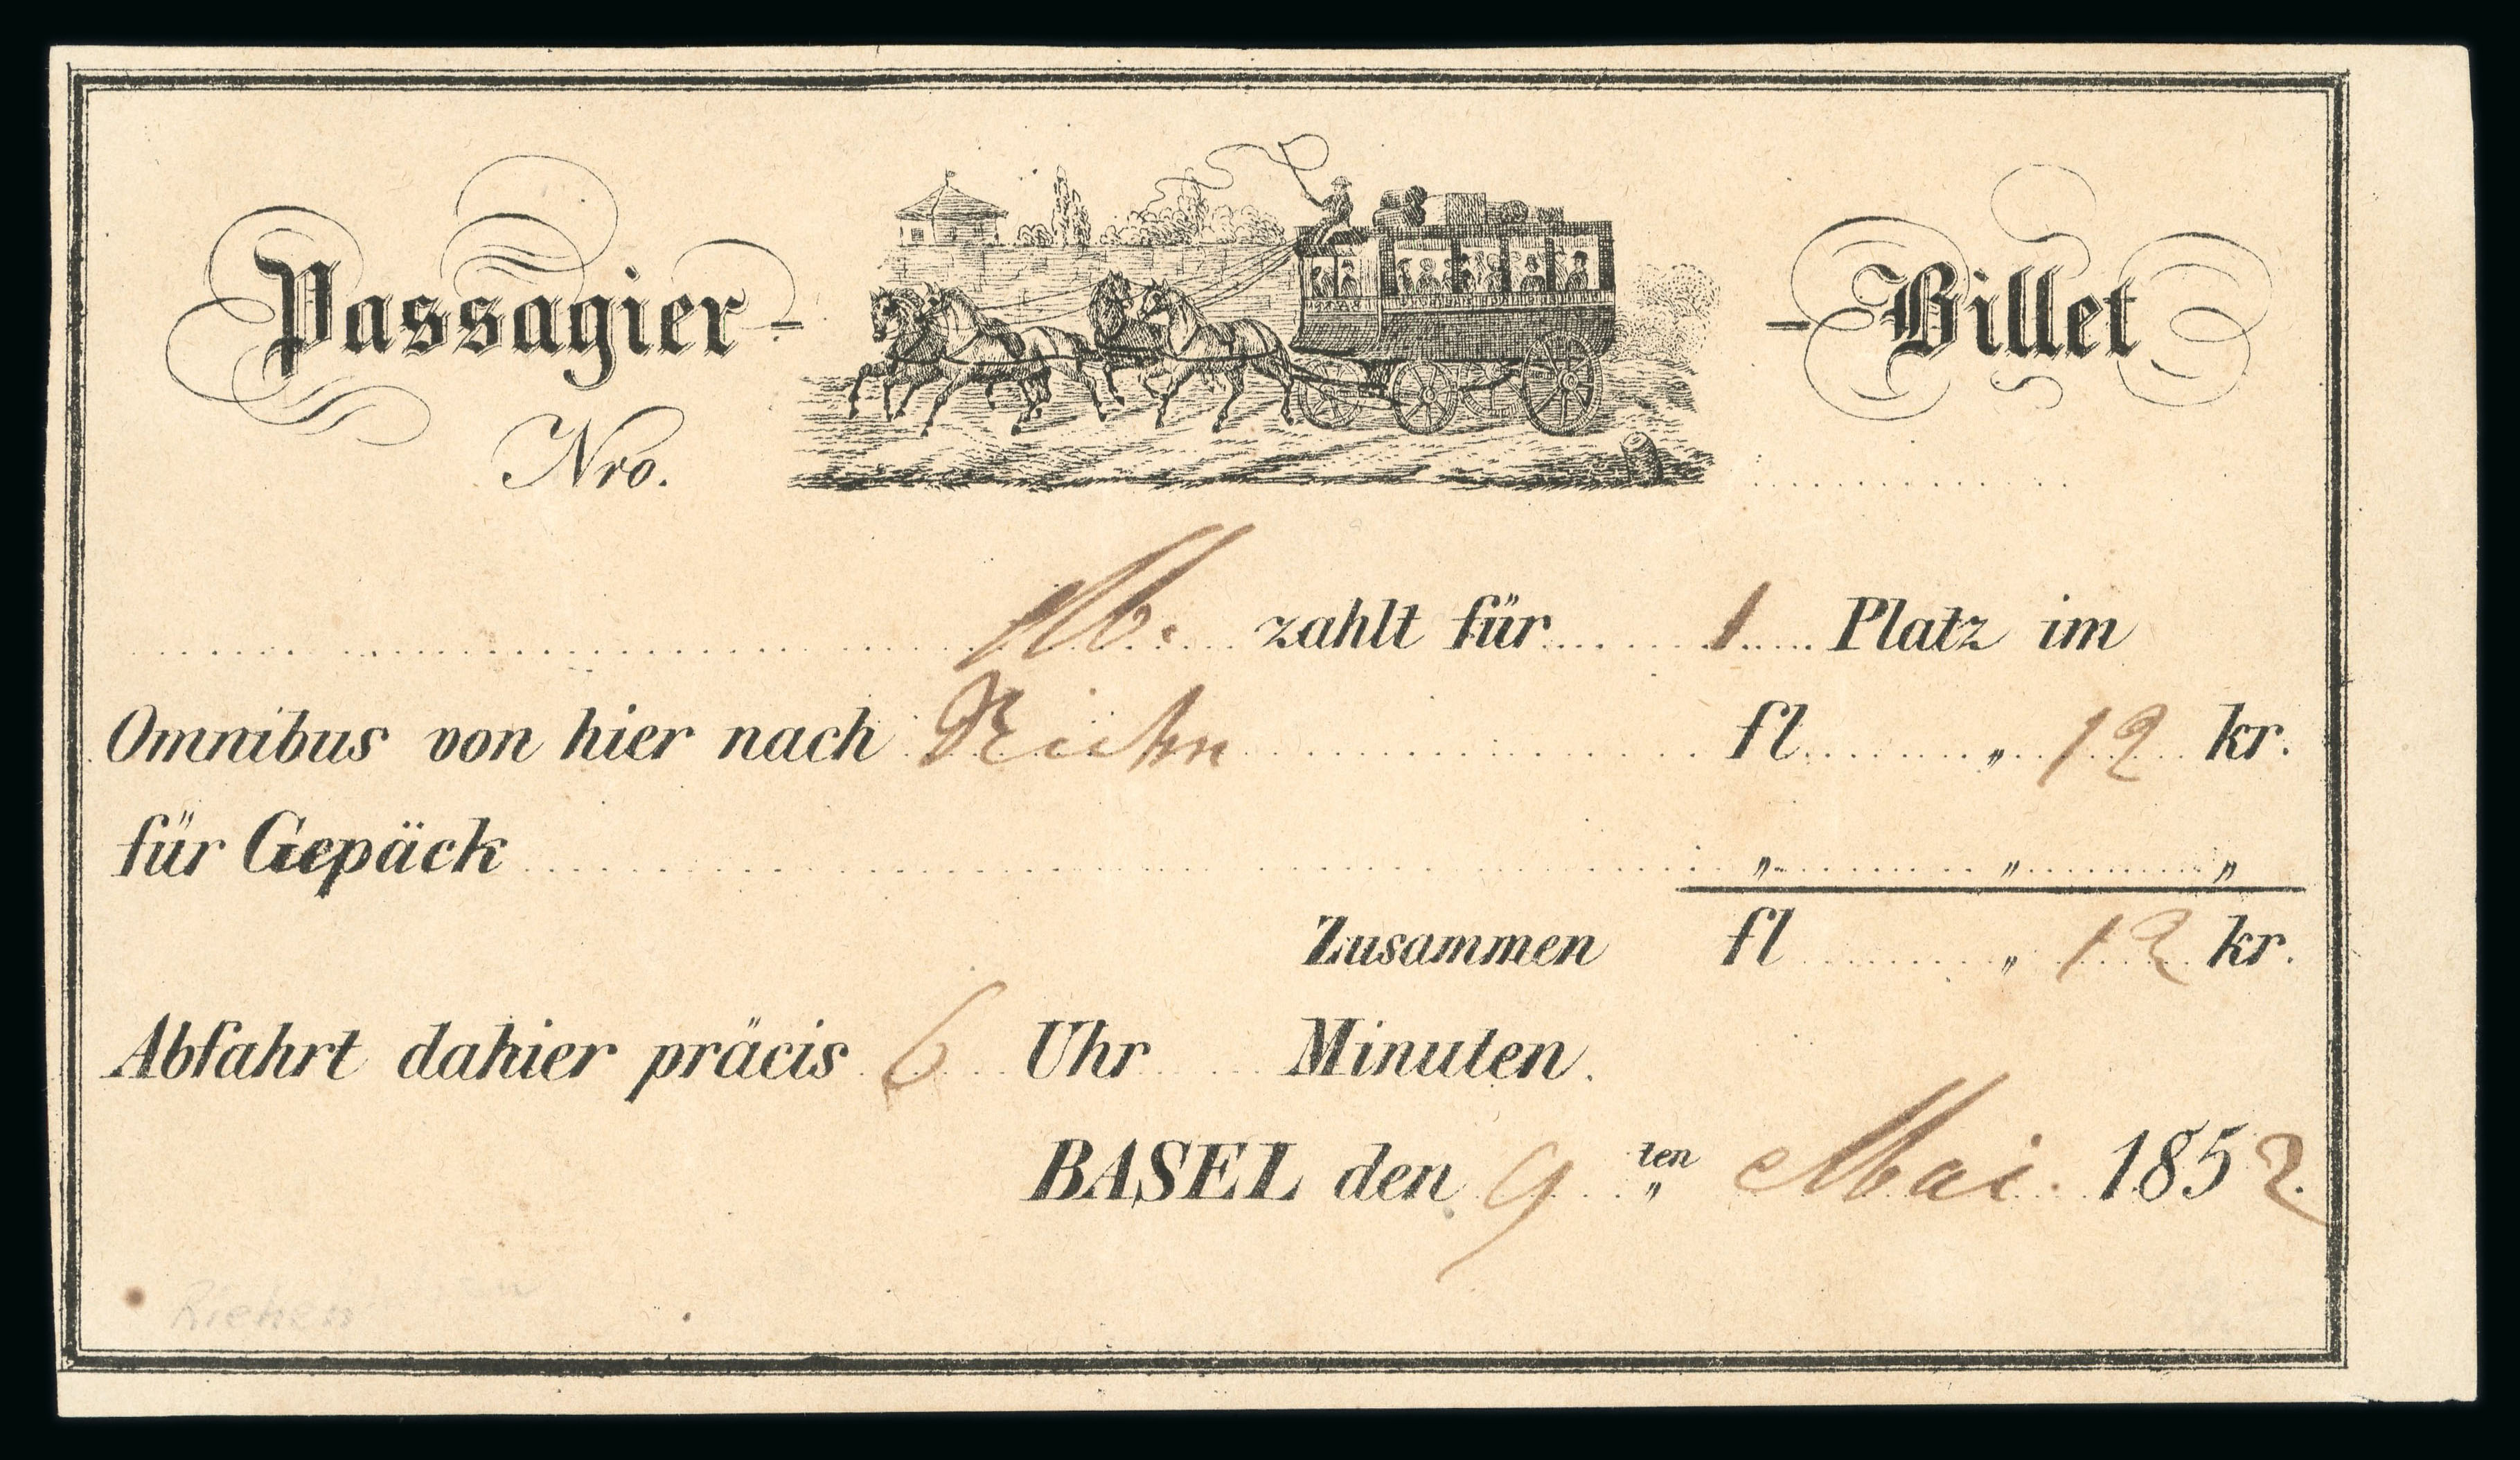 Passagier- -Billet
Nro.
zahlt für 1 Platz im
Omnibus von hier nach Riehn fl „ 12 kr.
für Gepäck „ „ „
Zusammen fl „ 12 kr.
Abfahrt dahier präcis 6 Uhr Minuten.
BASEL den 9 ten „ Mai. 1852.
Riehen